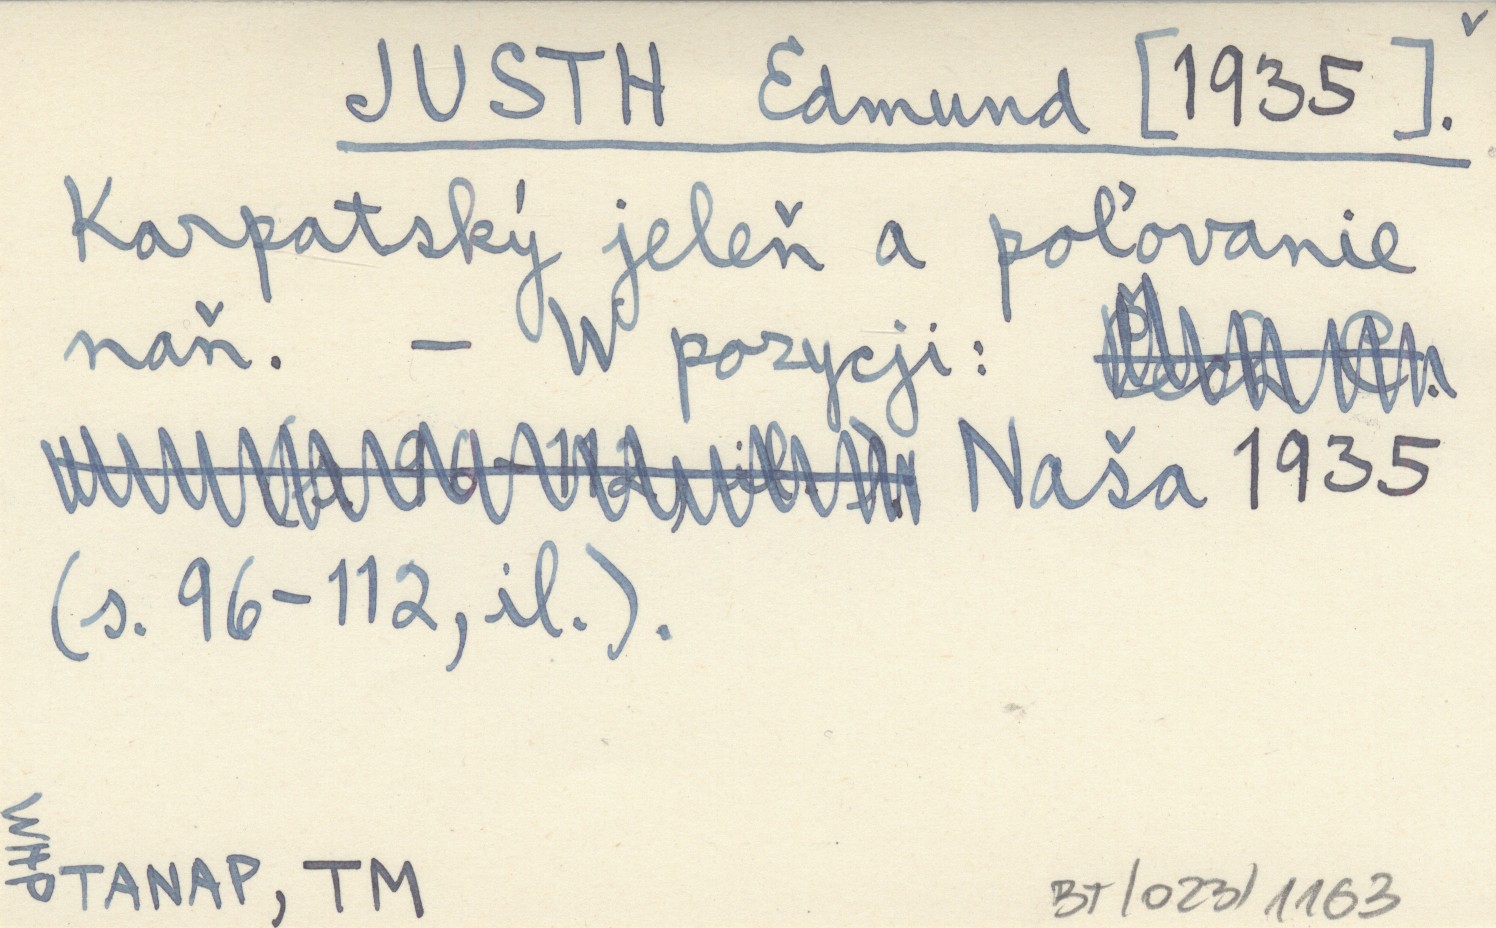 JUSTH Edmund [1935].
Karpatský jeleň a poľovanie
naň. - W pozycji:
Naša 1935
(s. 96-112, il.).
WHP
TANAP, TM
BT/023/1163